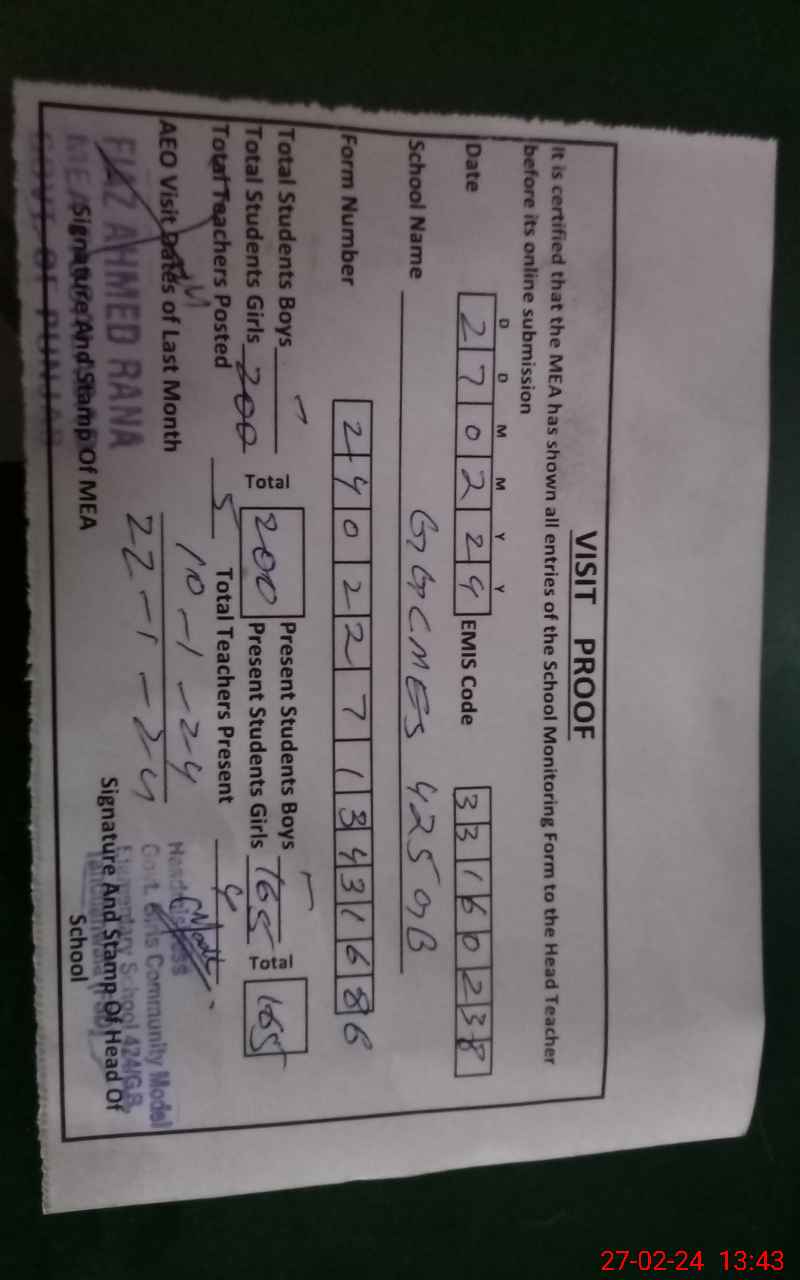 VISIT PROOF
It is certified that the MEA has shown all entries of the School Monitoring Form to the Head Teacher
before its online submission
D D M M Y Y
Date 2 7 0 2 2 4 EMIS Code 3 3 1 6 0 2 3 8
School Name GGCMES 425 GB
Form Number 2 4 0 2 2 7 1 3 4 3 1 6 8 6
Total Students Boys - Present Students Boys -
Total Students Girls 200 Total 200 Present Students Girls 165 Total 165
Total Teachers Posted 5 Total Teachers Present 4
AEO Visit Dates of Last Month 10-1-24
22-1-24
FIAZ AHMED RANA
MEA
GOVT. OF PUNJAB
Signature And Stamp Of MEA
Headmistress
Govt. Girls Community Model
Elementary School 424/G.B,
Signature And Stamp Of Head Of
School
27-02-24 13:43